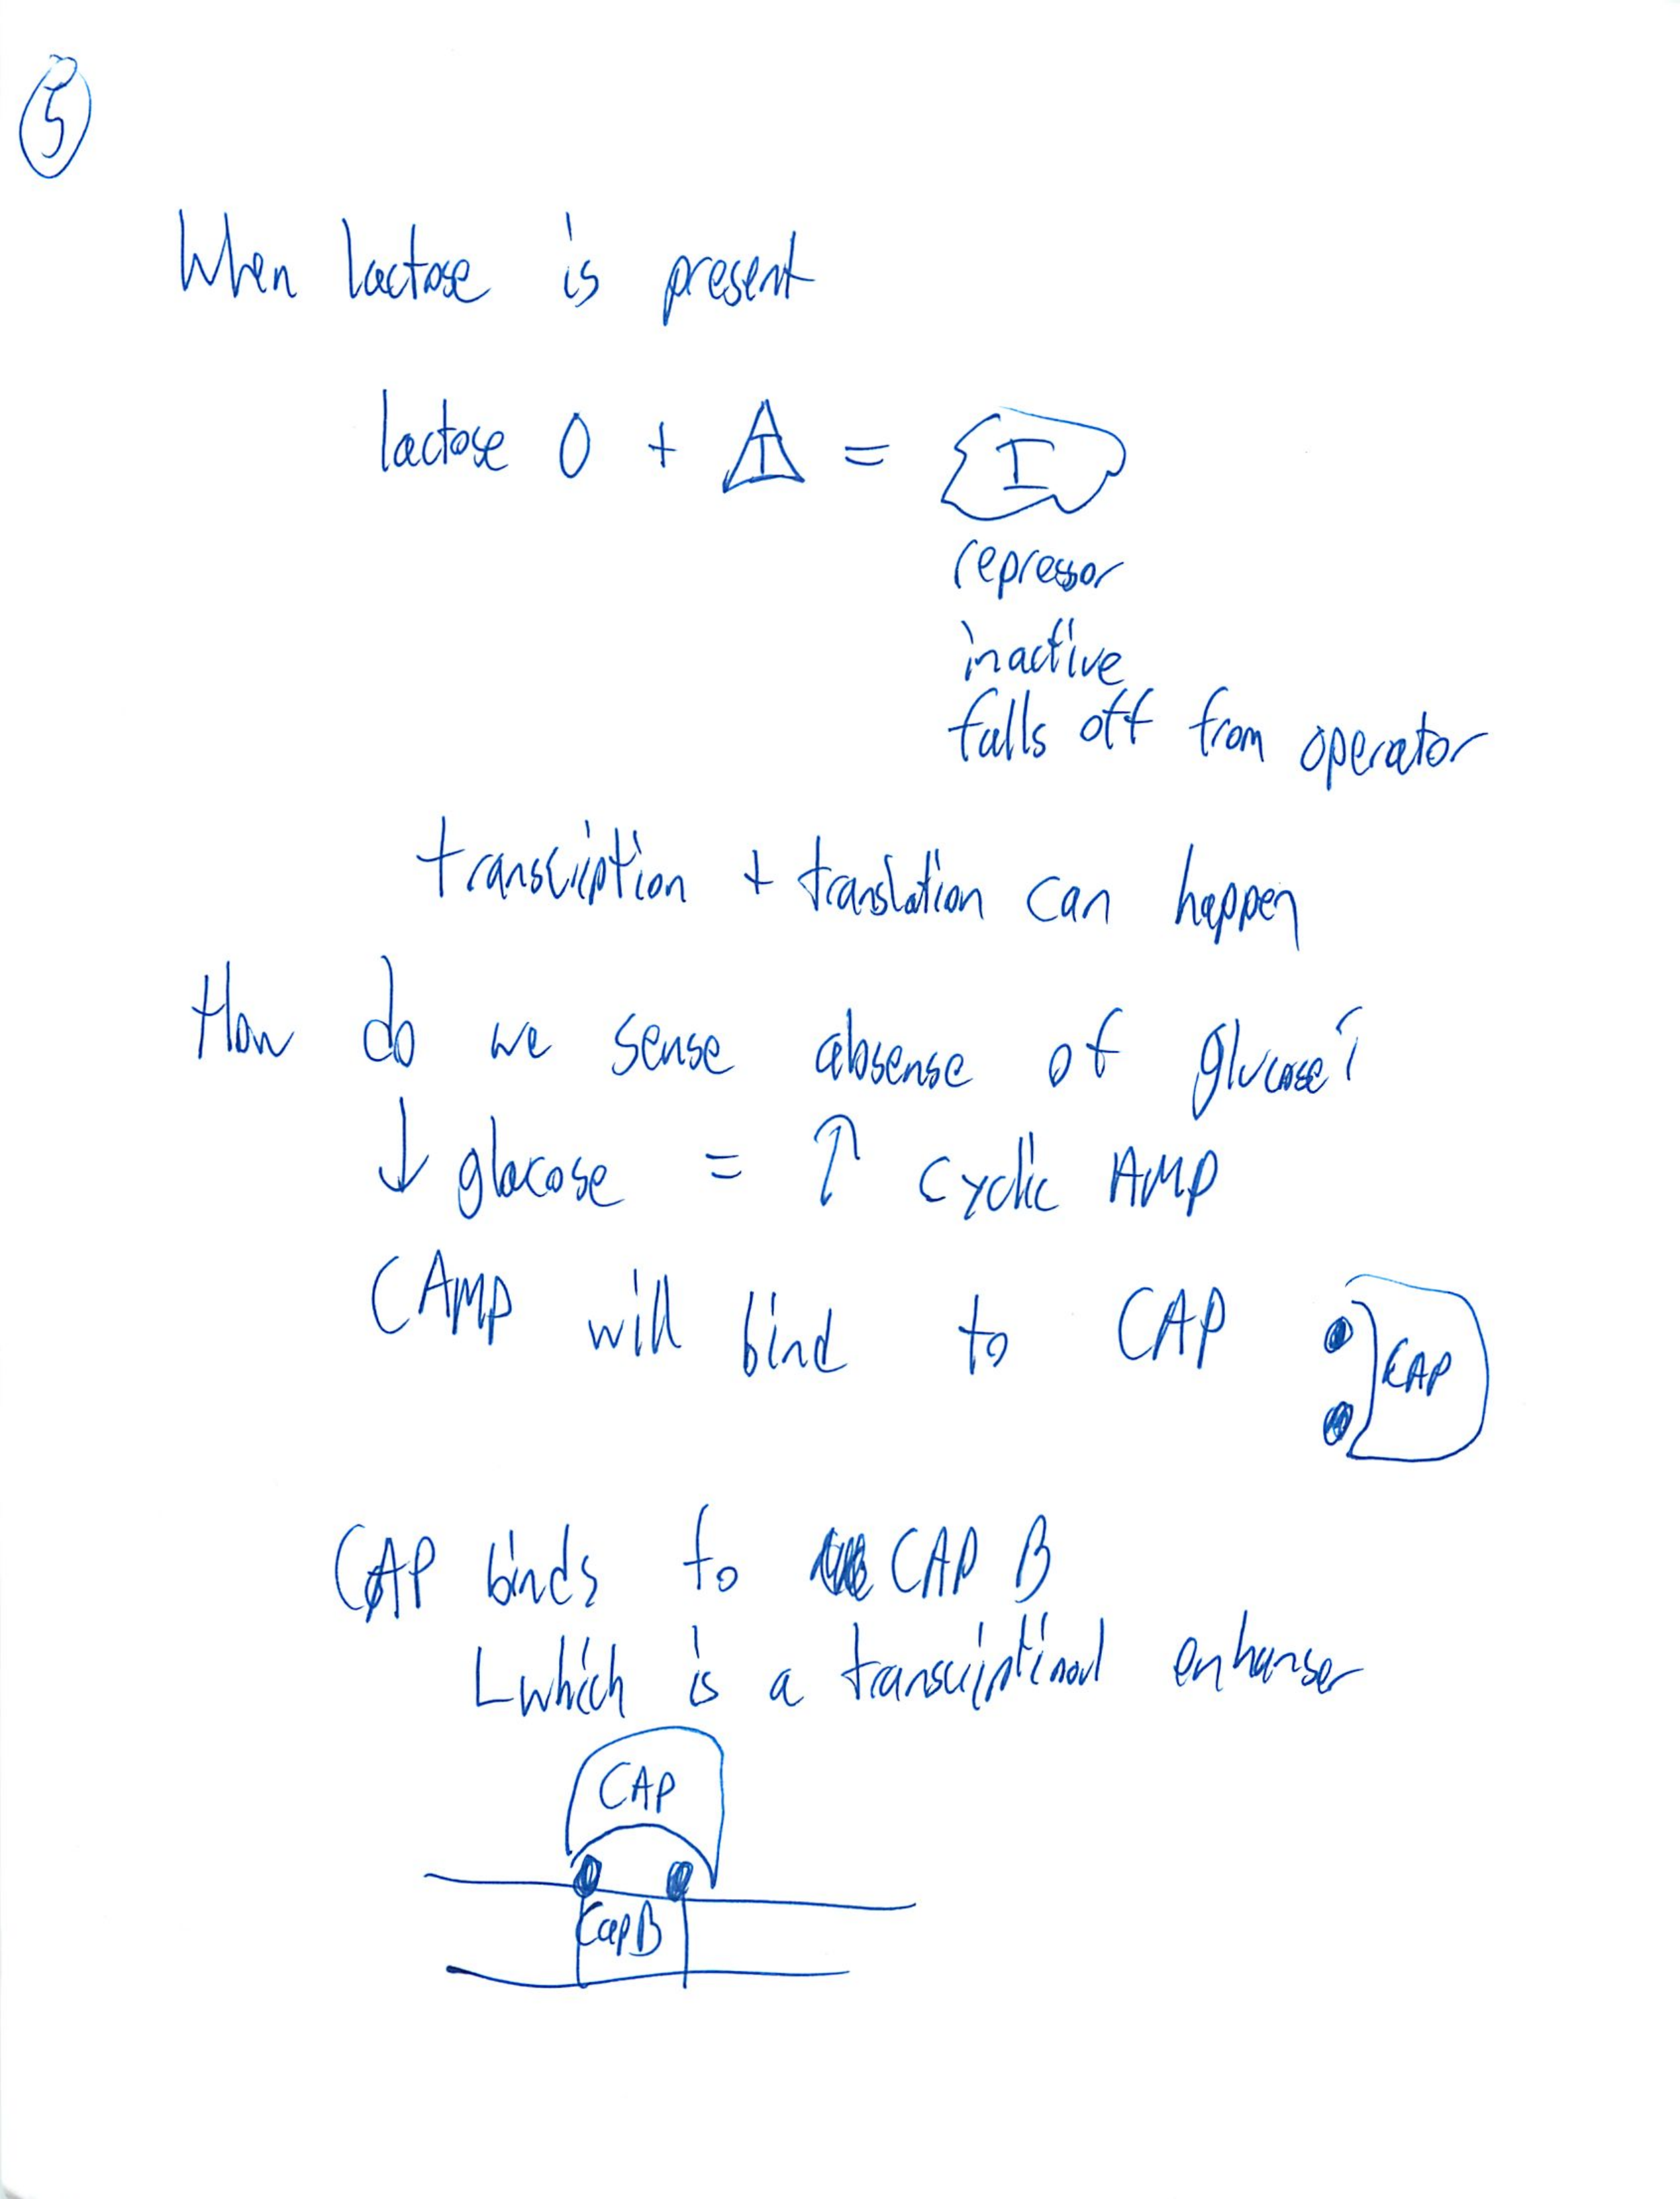 5
When lactose is present
lactose 0 + I = I
repressor
inactive
falls off from operator
transcription + translation can happen
How do we sense absense of glucose?
↓ glucose = ↑ cyclic AMP
CAMP will bind to CAP CAP
CAP binds to CAP B
which is a transcriptional enhanser
CAP
CapB